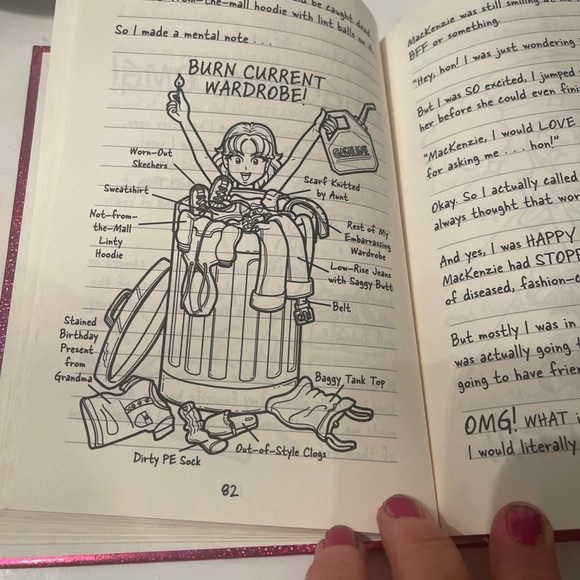 be caught dead
from-the-mall hoodie with lint balls on it.
So I made a mental note . . .
BURN CURRENT
WARDROBE!
GASOLINE
Worn-Out
Skechers
Scarf Knitted
by Aunt
Sweatshirt
Not-from-
the-Mall
Linty
Hoodie
Rest of My
Embarrassing
Wardrobe
Low-Rise Jeans
with Saggy Butt
Belt
Stained
Birthday
Present
from
Grandma
Baggy Tank Top
Out-of-Style Clogs
Dirty PE Sock
82
MacKenzie was still smiling
BFF or something.
"Hey, hon! I was just wondering
But I was SO excited, I jumped
her before she could even
"MacKenzie, I would LOVE
for asking me . . . hon!"
Okay. So I actually called
always thought that
And yes, I was HAPPY
MacKenzie had
of diseased,
But mostly I was in
was actually going
going to have
OMG! WHAT
I would literally